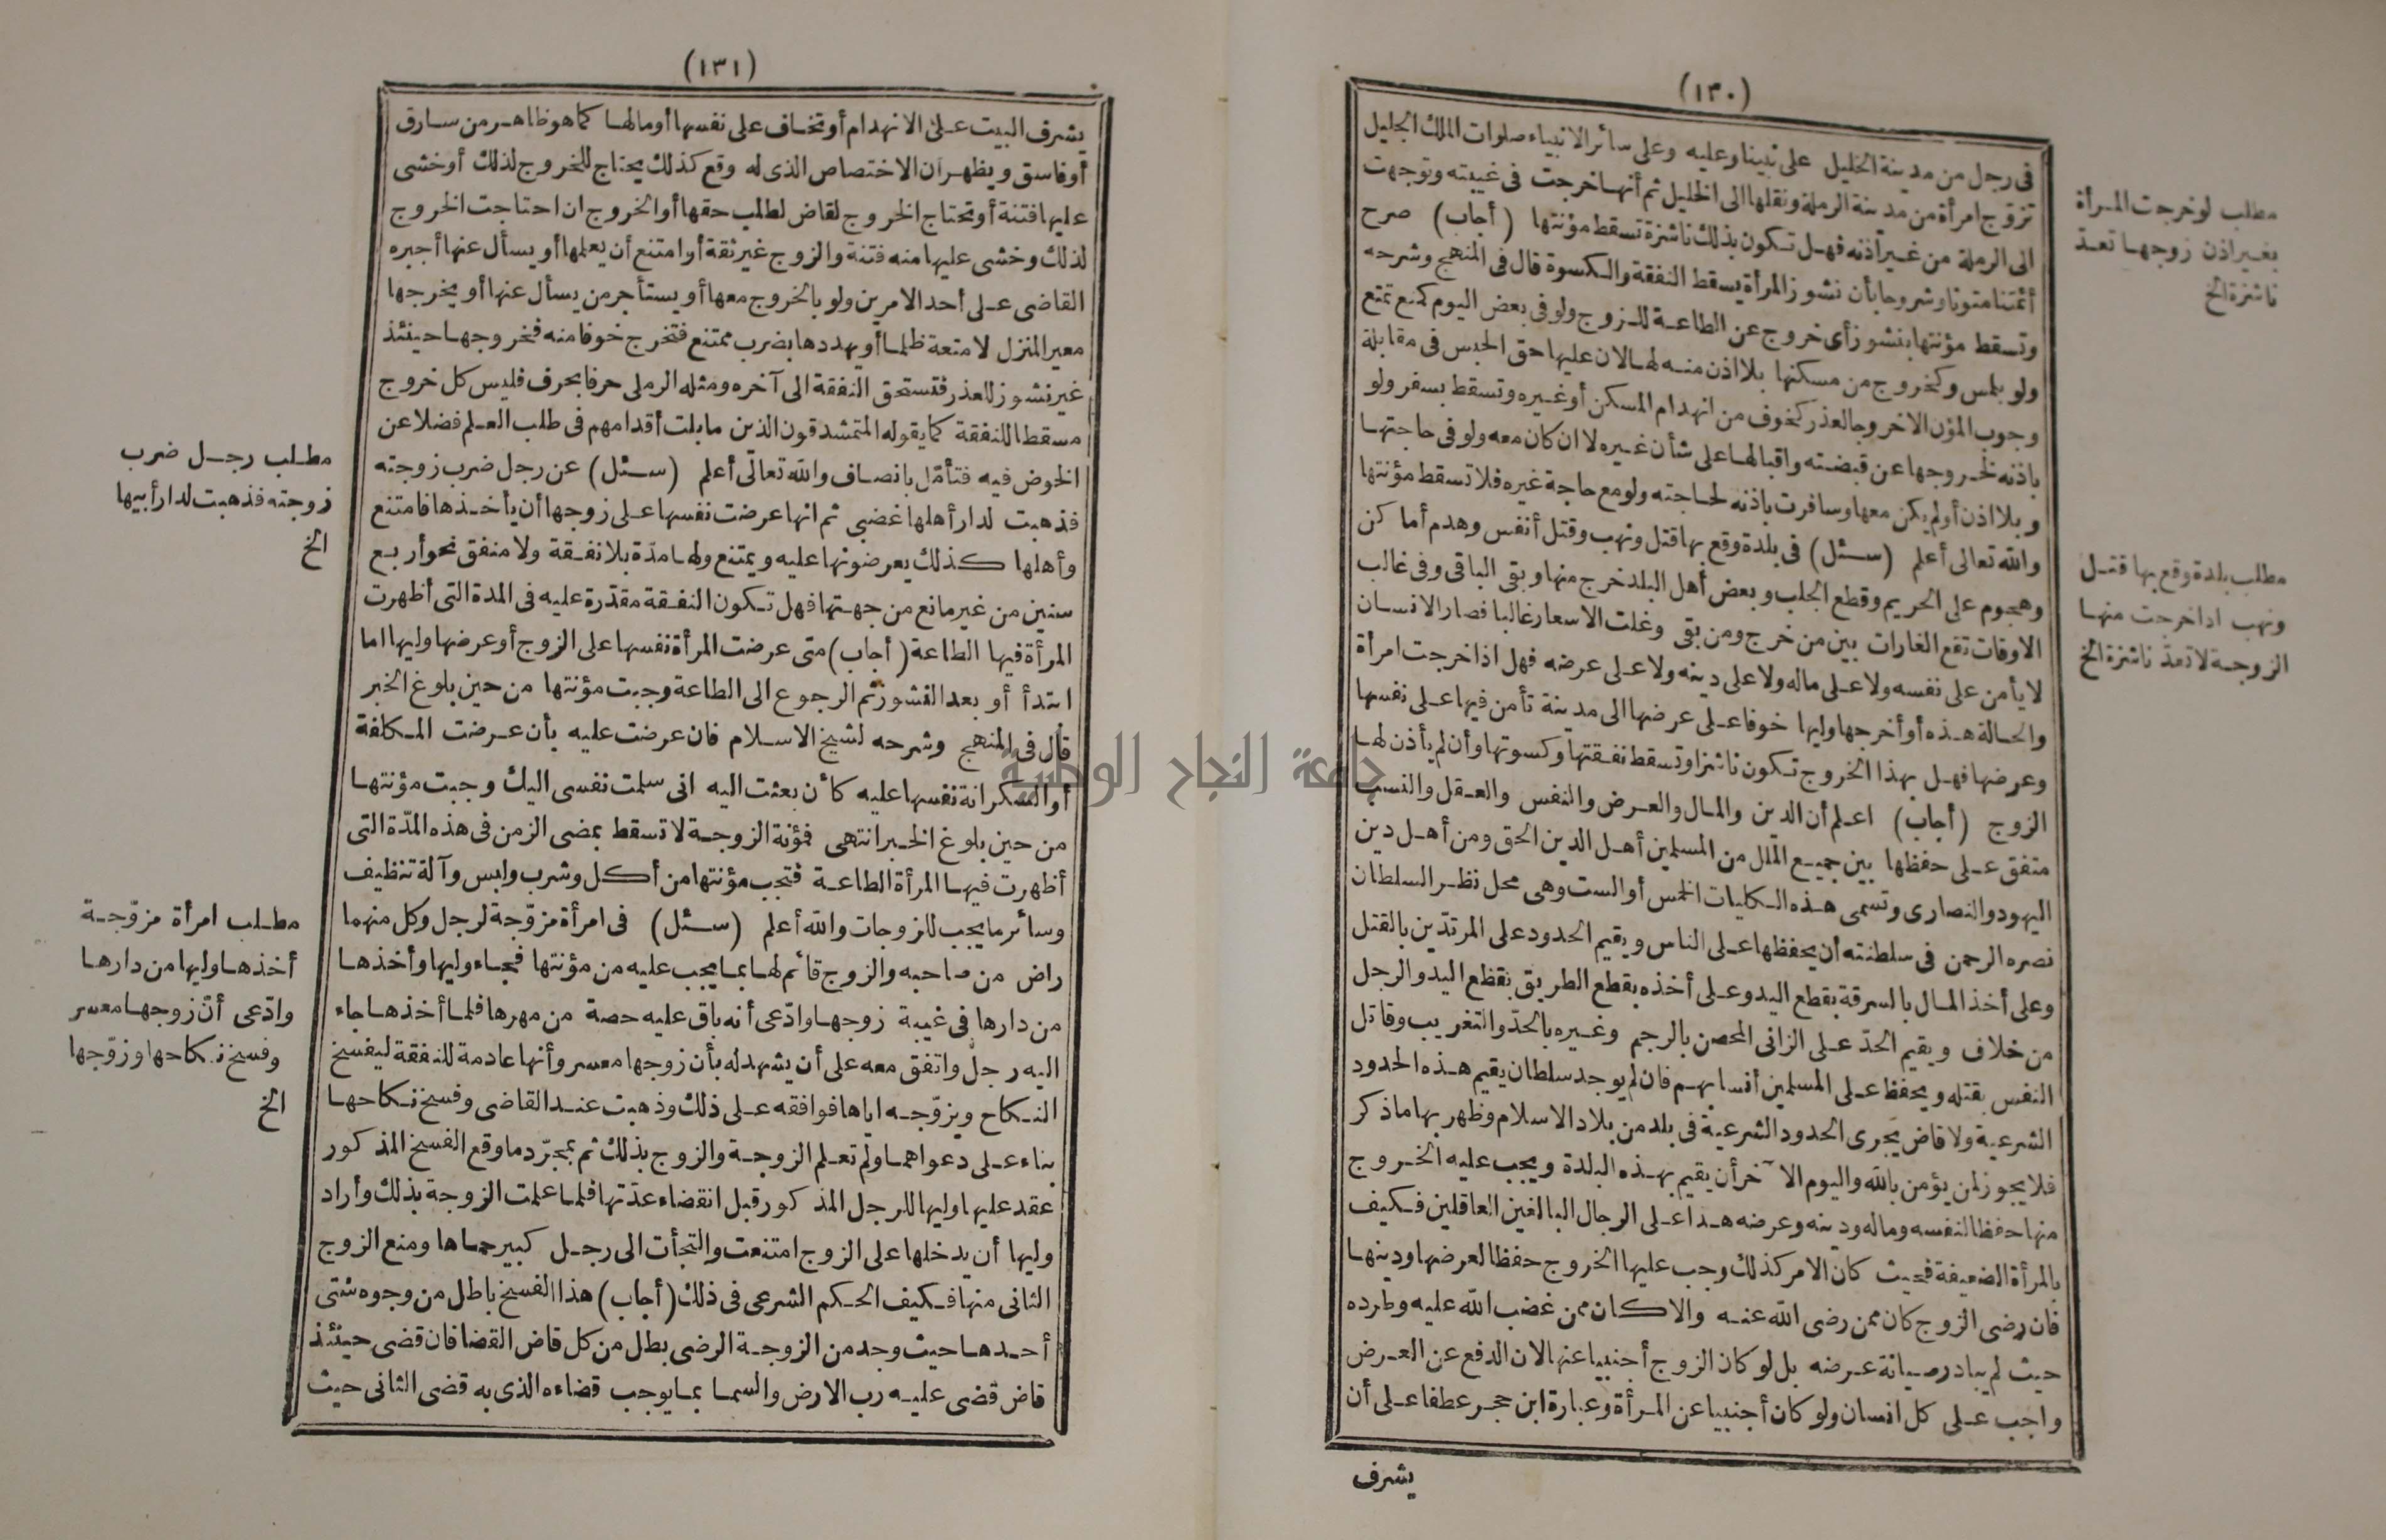 (١٣٠)
فى رجل من مدينة الخليل على نبينا وعليه وعلى سائر الانبياء صلوات الملك الجليل
تزوّج امرأة من مدينة الرملة ونقلها الى الخليل ثم أنها خرجت فى غيبته وتوجهت
الى الرملة من غير اذنه فهل تكون بذلك ناشزة تسقط مؤنتها (أجاب) صرح
أئمتنا متونا وشروحا بأن نشوز المرأة يسقط النفقة والكسوة قال فى المنهج وشرحه
وتسقط مؤنتها بنشوز أى خروج عن الطاعة للزوج ولو فى بعض اليوم كمنع تمتع
ولو بلمس وكخروج من مسكنها بلا اذن منه لها لان عليها حق الحبس فى مقابلة
وجوب المؤن الا خروجا لعذر كخوف من انهدام المسكن أو غيره وتسقط بسفر ولو
باذنه لخروجها عن قبضته واقبالها على شأن غيره لا ان كان معه ولو فى حاجتها
وبلا اذن أو لم يكن معها وسافرت باذنه لحاجته ولو مع حاجة غيره فلا تسقط مؤنتها
والله تعالى أعلم (سئل) فى بلدة وقع بها قتل ونهب وقتل أنفس وهدم أماكن
وهجوم على الحريم وقطع الجلب وبعض أهل البلد خرج منها وبقى الباقى وفى غالب
الاوقات تقع الغارات بين من خرج ومن بقى وغلت الاسعار غالبا فصار الانسان
لا يأمن على نفسه ولا على ماله ولا على دينه ولا على عرضه فهل اذا خرجت امرأة
والحالة هذه أو أخرجها وليها خوفا على عرضها الى مدينة تأمن فيها على نفسها
وعرضها فهل بهذا الخروج تكون ناشزا وتسقط نفقتها وكسوتها وأن لم يأذن لها
الزوج (أجاب) اعلم أن الدين والمال والعرض والنفس والعقل والنسب
متفق على حفظها بين جميع الملل من المسلمين أهل الدين الحق ومن أهل دين
اليهود والنصارى وتسمى هذه الكليات الخمس أو الست وهى محل نظر السلطان
نصره الرحمن فى سلطنته أن يحفظها على الناس ويقيم الحدود على المرتدّين بالقتل
وعلى أخذ المال بالسرقة بقطع اليد وعلى أخذه بقطع الطريق بقطع اليد والرجل
من خلاف ويقيم الحدّ على الزانى المحصن بالرجم وغيره بالحدّ والتغريب وقاتل
النفس بقتله ويحفظ على المسلمين أنسابهم فان لم يوجد سلطان يقيم هذه الحدود
الشرعية ولا قاض يجرى الحدود الشرعية فى بلد من بلاد الاسلام وظهر بها ما ذكر
فلا يجوز لمن يؤمن بالله واليوم الآخر أن يقيم بهذه البلدة ويجب عليه الخروج
منها حفظا لنفسه وماله ودينه وعرضه هذا على الرجال البالغين العاقلين فكيف
بالمرأة الضعيفة فحيث كان الامر كذلك وجب عليها الخروج حفظا لعرضها ودينها
فان رضى الزوج كان ممن رضى الله عنه والا كان ممن غضب الله عليه وطرده
حيث لم يبادر صيانة عرضه بل لو كان الزوج أجنبيا عنها لان الدفع عن العرض
واجب على كل انسان ولو كان أجنبيا عن المرأة وعبارة ابن حجر عطفا على أن
يشرف
مطلب لو خرجت المرأة
بغير اذن زوجها تعدّ
ناشزة الخ
مطلب بلدة وقع بها قتل
ونهب اذا خرجت منها
الزوجة لا تعدّ ناشزة الخ
(١٣١)
يشرف البيت على الانهدام أو تخاف على نفسها أو مالها كما هو ظاهر من سارق
أو فاسق ويظهر ان الاختصاص الذى له وقع كذلك يحتاج للخروج لذلك أو خشى
عليها فتنة أو تحتاج الخروج لقاض لطلب حقها أو الخروج ان احتاجت الخروج
لذلك وخشى عليها منه فتنة والزوج غير ثقة أو امتنع أن يعلمها أو يسأل عنها أجبره
القاضى على أحد الامرين ولو بالخروج معها أو يستأجر من يسأل عنها أو يخرجها
معير المنزل لا متعة ظلما أو يهددها بضرب ممتنع فتخرج خوفا منه فخروجها حينئذ
غير نشوز للعذر فتستحق النفقة الى آخره ومثله الرملى حرفا بحرف فليس كل خروج
مسقطا للنفقة كما يقوله المتمشدقون الذين ما بلت أقدامهم فى طلب العلم فضلا عن
الخوض فيه فتأمّل بانصاف والله تعالى أعلم (سئل) عن رجل ضرب زوجته
فذهبت لدار أهلها غضبى ثم انها عرضت نفسها على زوجها أن يأخذها فامتنع
وأهلها كذلك يعرضونها عليه ويمتنع ولها مدّة بلا نفقة ولا منفق نحو أربع
سنين من غير مانع من جهتها فهل تكون النفقة مقدّرة عليه فى المدة التى أظهرت
المرأة فيها الطاعة (أجاب) متى عرضت المرأة نفسها على الزوج أو عرضها وليها اما
ابتدأ أو بعد النشوز ثم الرجوع الى الطاعة وجبت مؤنتها من حين بلوغ الخبر
قال فى المنهج وشرحه لشيخ الاسلام فان عرضت عليه بأن عرضت المكلفة
أو السكرانة نفسها عليه كأن بعثت اليه انى سلمت نفسى اليك وجبت مؤنتها
من حين بلوغ الخبر انتهى فمؤنة الزوجة لا تسقط بمضى الزمن فى هذه المدّة التى
أظهرت فيها المرأة الطاعة فتجب مؤنتها من أكل وشرب ولبس وآلة تنظيف
وسائر ما يجب للزوجات والله أعلم (سئل) فى امرأة مزوّجة لرجل وكل منهما
راض من صاحبه والزوج قائم لها بما يجب عليه من مؤنتها فجاء وليها وأخذها
من دارها فى غيبة زوجها وادّعى أنه باق عليه حصة من مهرها فلما أخذها جاء
اليه رجل واتفق معه على أن يشهد له بأن زوجها معسر وأنها عادمة للنفقة ليفسخ
النكاح ويزوّجه اياها فوافقه على ذلك وذهبت عند القاضى وفسخ نكاحها
بناء على دعواهما ولم تعلم الزوجة والزوج بذلك ثم بمجرّد ما وقع الفسخ المذكور
عقد عليها وليها للرجل المذكور قبل انقضاء عدّتها فلما علمت الزوجة بذلك وأراد
وليها أن يدخلها على الزوج امتنعت والتجأت الى رجل كبير حماها ومنع الزوج
الثانى منها فكيف الحكم الشرعى فى ذلك (أجاب) هذا الفسخ باطل من وجوه شتى
أحدها حيث وجد من الزوجة الرضى بطل من كل قاض القضا فان قضى حينئذ
قاض قضى عليه رب الارض والسما بما يوجب قضاءه الذى به قضى الثانى حيث
مطلب رجل ضرب
زوجته فذهبت لدار أبيها
الخ
مطلب امرأة مزوّجة
أخذها وليها من دارها
وادّعى أنّ زوجها معسر
وفسخ نكاحها وزوّجها
الخ
جامعة النجاح الوطنية